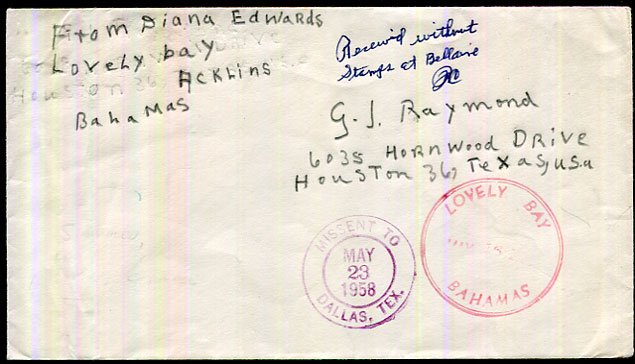 From Diana Edwards
Lovely bay
Acklins
Bahamas
Received without
Stamps at Bellaire
G. J. Raymond
6035 Hornwood Drive
Houston 36, Texas, usa
MISSENT TO
MAY
23
1958
DALLAS, TEX.
LOVELY BAY
MAY
BAHAMAS